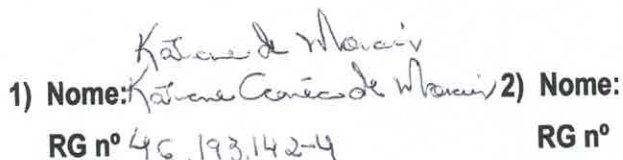 Katiane de Morais
1) Nome: Katiane de Morais 2) Nome:
RG nº 46.193.142-4 RG nº